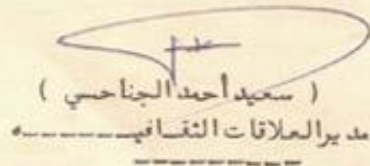 ( سعيد أحمد الجناحي )
مدير العلاقات الثقافيــــــــه